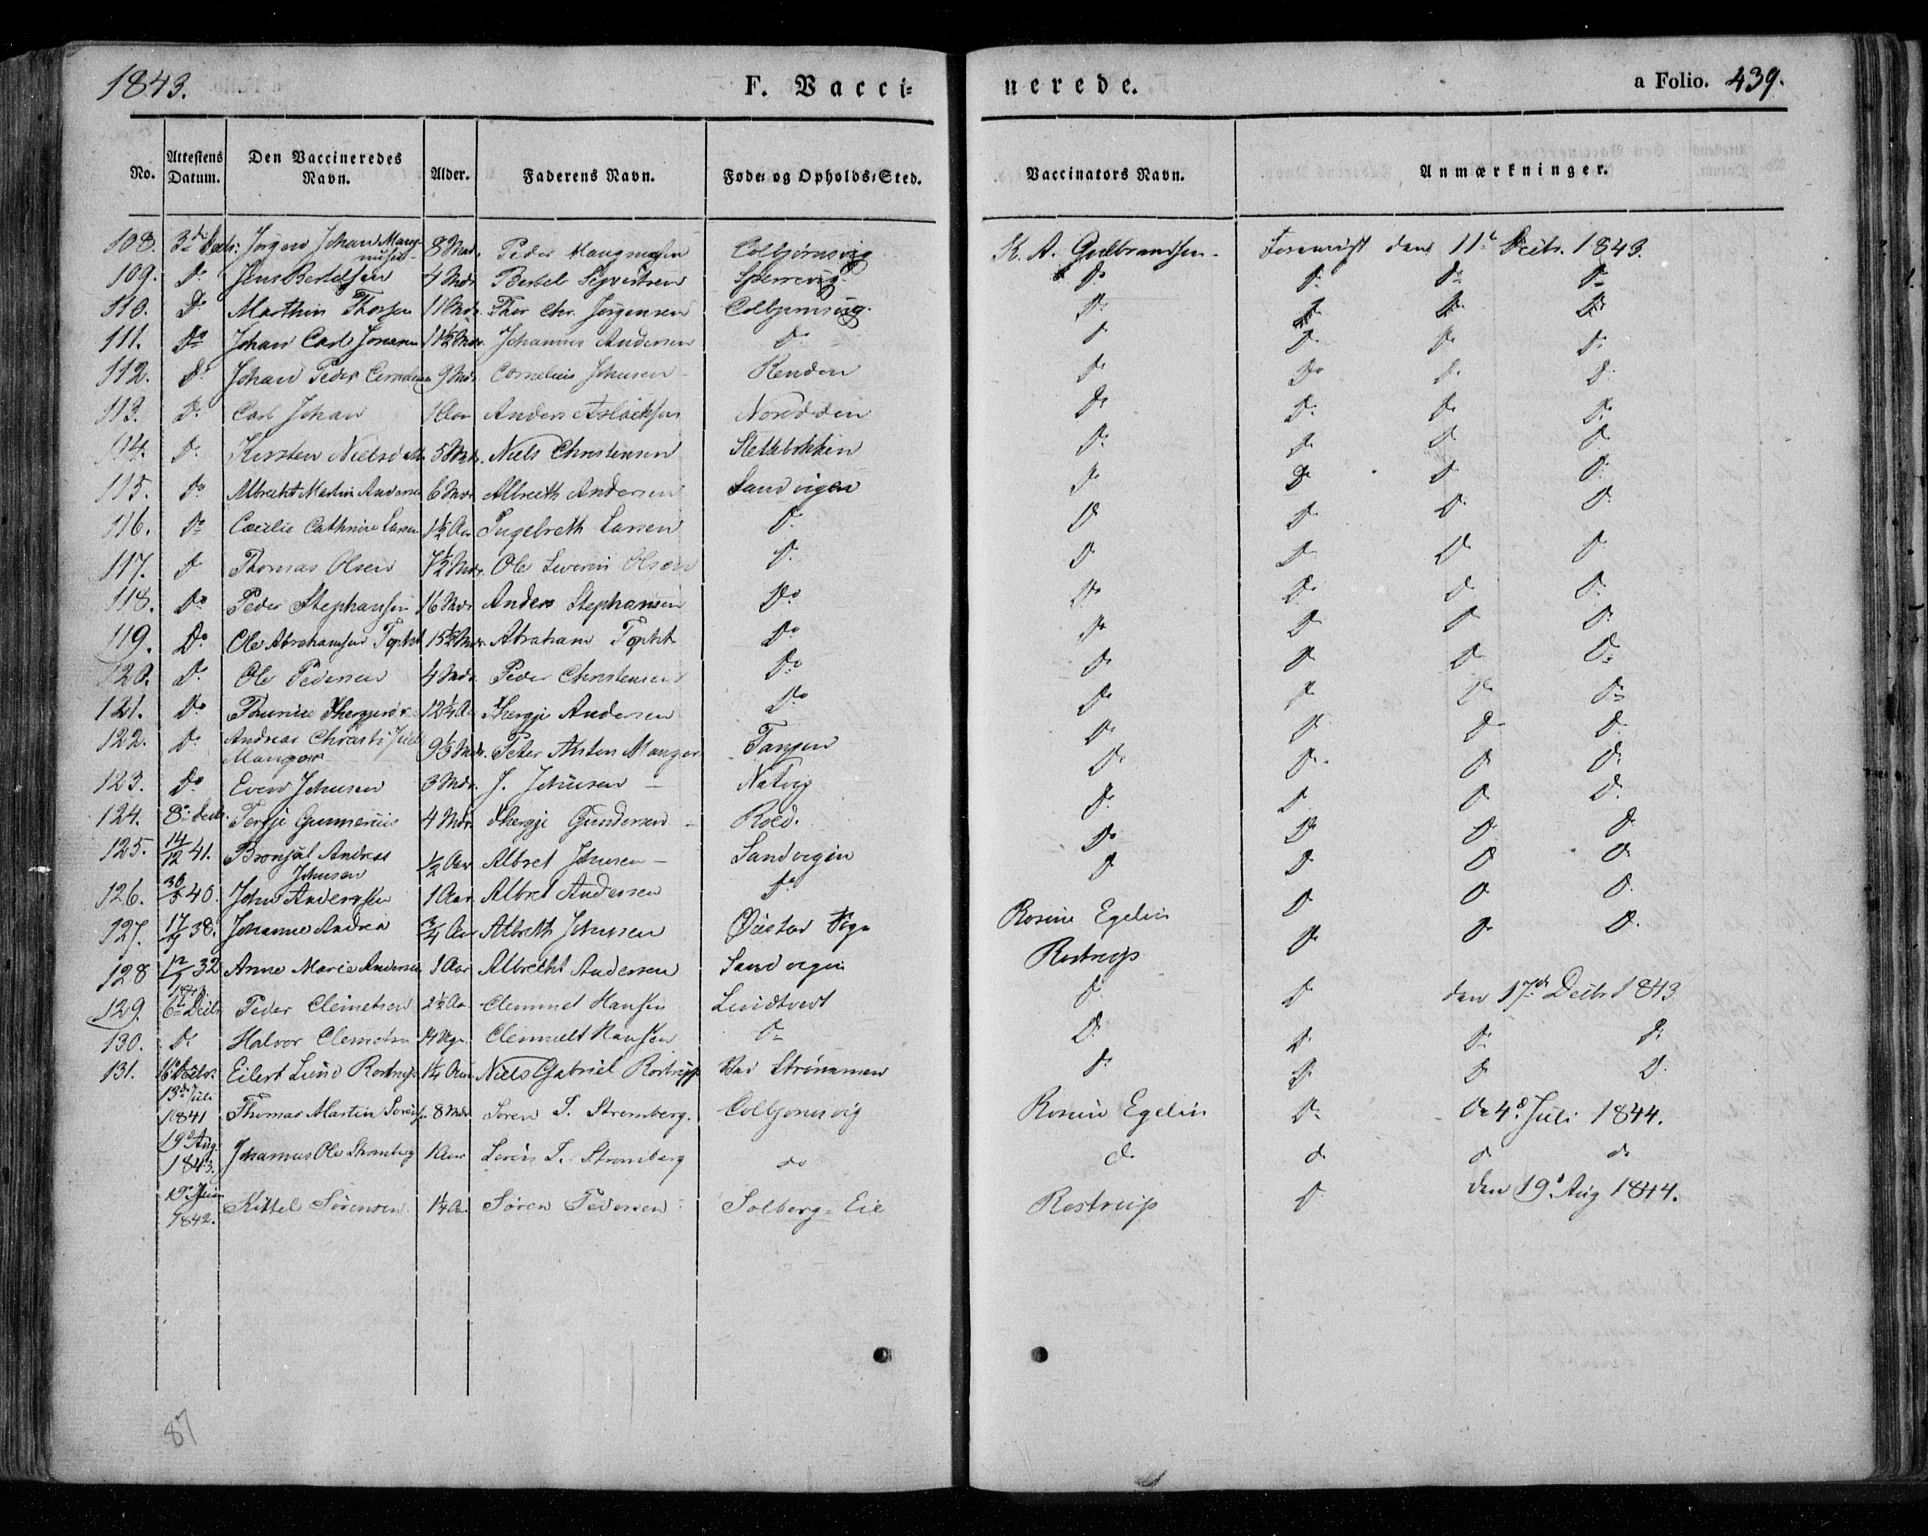 1843. F. Vacci= nerede. a Folio. 439.
No. Attestens Datum. Den Vaccineredes Navn. Alder. Faderens Navn. Føde= og Opholds=Sted. Vaccinators Navn. Anmærkninger.
108. 3d Decbr: Jørgen Johan Mang- 8 Mdr. Peder Mangnusen Colbjørnsvig K. A. Gulbrandsen. Foreviist den 11te Decbr. 1843.
nusen
109. Do Jens Bertelsen 4 Mdr. Bertel Syvertsen Sperrevig Do Do Do Do
110. Do Marthin Thorsen 11 Mdr. Thor Chr. Jørgensen Colbjørnsvig. Do Do Do Do
111. Do Johan Carl Johansen 11½ Mdr. Johannes Andersen Do Do Do Do Do
112. Do Johan Peder Cornelius 9 Mdr. Cornelius Johnsen Renden Do Do Do Do
113. Do Carl Johan 1 Aar Anders Aslaksen Noredden Do Do Do Do
114. Do Kirsten Nielsdtr 5 Mdr. Niels Christensen Slettebakken Do Do Do Do
115. Do Albrecht Martin Andersen 6 Mdr Albreth Andersen Sandvigen Do Do Do Do
116. Do Cæcilie Cathrine Larsen 1½ Aar Ingebreth Larsen Do Do Do Do Do
117. Do Thomas Olsen 7½ Mdr. Ole Severin Olsen Do Do Do Do Do
118. Do Peder Stephansen 16 Mdr. Anders Stephansen Do Do Do Do Do
119. Do Ole Abrahamsen 15½ Mdr Abraham Do Do Do Do Do
120. Do Ole Pedersen 4 Mdr. Peder Christensen Do Do Do Do Do
121. Do Thergjesd. 12¼ A. Thergje Andersen Do Do Do Do Do
122. Do Andreas Christi Juel 9½ Mdr. Peter Anton Manger Tangen Do Do Do Do
Manger
123. Do Even Johnsen 3 Mdr. J. Johnsen — Natvig Do Do Do Do
124. 8de Decbr. Terje Gunnerius 4 Mdr. Thergje Gundersen Roed. Do Do Do Do
125. 14/12 41. Andreas ½ Aar Albret Johnsen — Sandvigen Do Do Do Do
Johnsen
126. 30/5 40. John Andersen 1 Aar Albret Andersen Do Do Do Do Do
127. 17/9 38. Johanne Andrea ¾ Aar Albreth Johnsen Øiestad Rosine Egelin Do Do Do
128 12/7 32 Anne Marie Andersen 1 Aar Albrecht Andersen Sandvigen Rostrup Do Do Do
1843
129. 6te Decbr. Peder Clemetsen 2½ Aar Clemmet Hansen Lindtvedt Do Do den 17de Decbr 1843
130. Do Halvor Clemetsen 14 Uger Clemmet Hansen Do Do Do Do Do
131. 16 Decbr. Eilert Lund Rostrup 1¼ Aar Niels Gabriel Rostrup Ved Strømmen Do Do Do Do
13de Juli
1841 Thomas Martin Sørens. 8 Mdr Søren T. Stromberg. Colbjørnsvig Rosine Egelin Do Do 4d. Juli 1844.
19d Aug
1843. Johannes Ole Stromberg 1 Aar Søren T. Stromberg do do do do do
19de Juni
1842. Kittel Sørensen 1¼ A. Søren Pedersen Solberg=Eie Rostrup Do den 19d Aug 1844.
87